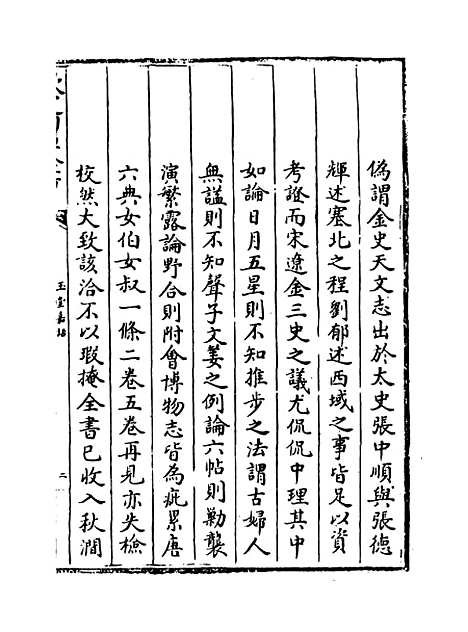 偽謂金史天文志出於太史張中順與張德
輝述塞北之程劉郁述西域之事皆足以資
考證而宋遼金三史之議尤侃侃中理其中
如論日月五星則不知推步之法謂古婦人
無諡則不知聲子文姜之例論六帖則勦襲
演繁露論野合則附會博物志皆為疵累唐
六典女伯女叔一條二卷五卷再見亦失檢
校然大致該洽不以瑕掩全書已收入秋澗
玉堂嘉話
二